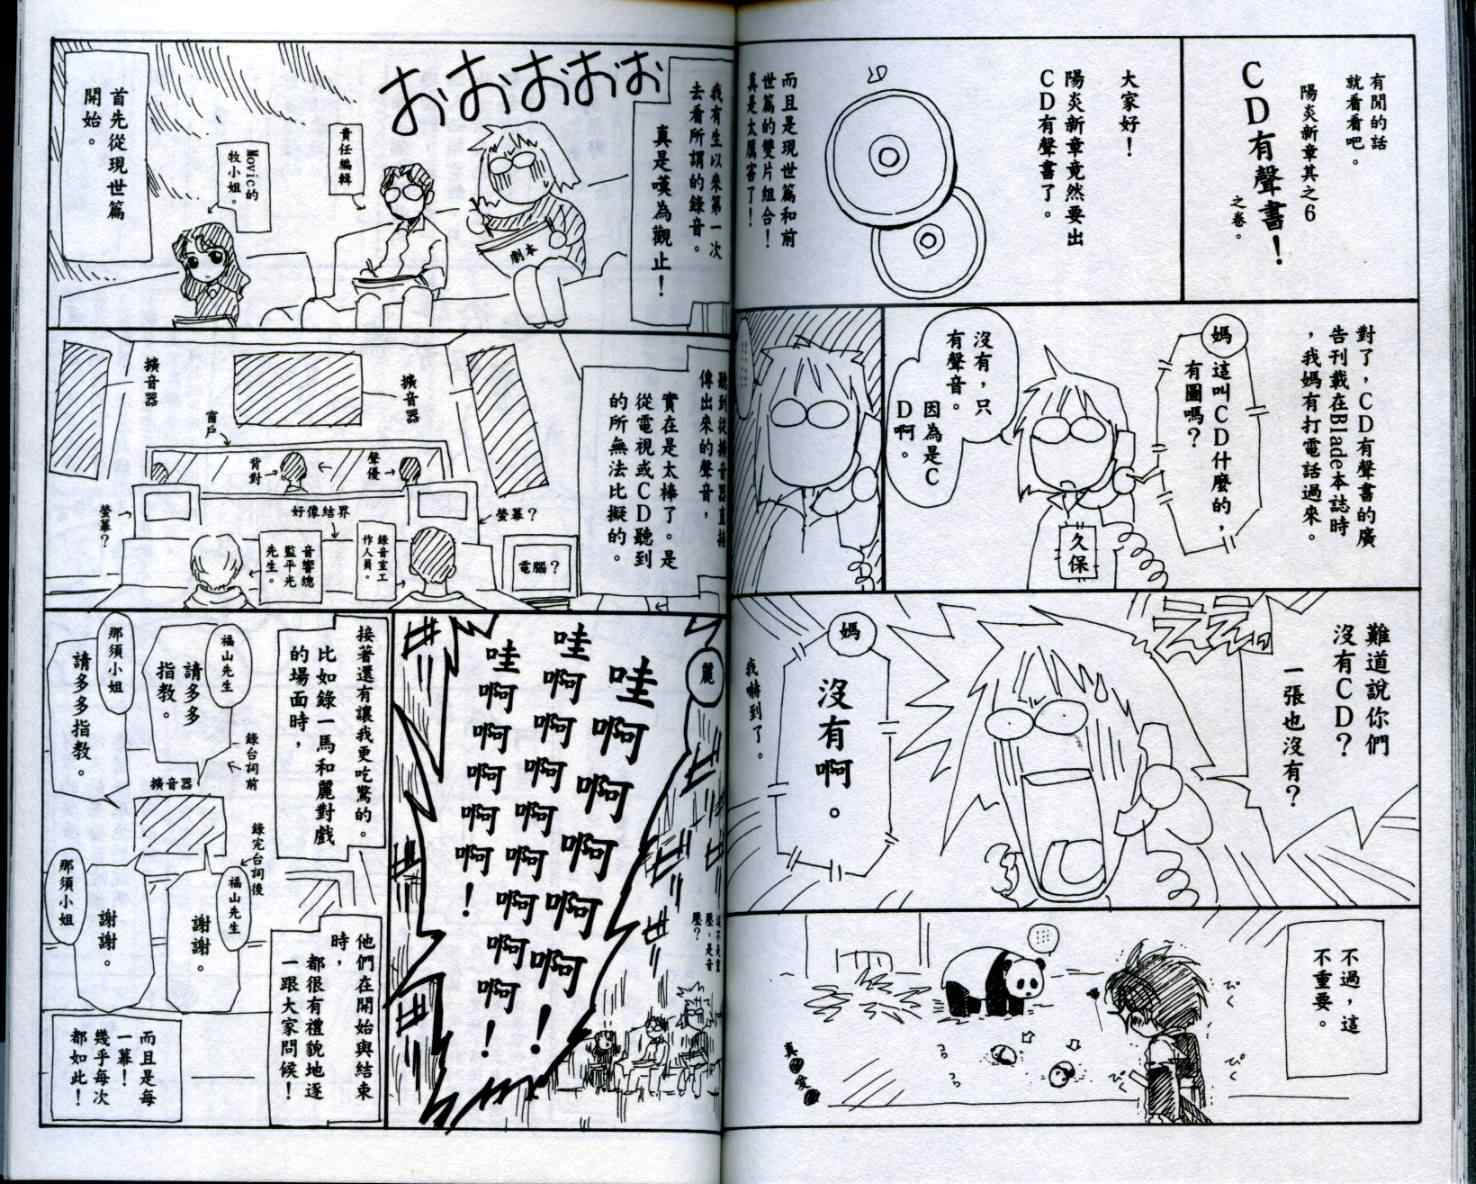 有聞的話
就看看吧。
陽炎新章其之6
CD有聲書！
之卷。
大家好！
陽炎新章竟然要出
CD有聲書了。
而且是現世篇和前
世篇的雙片組合！
真是太厲害了！
對了，CD有聲書的廣
告刊載在Blade本誌時
，我媽有打電話過來。
媽
這叫CD什麼的，
有圖嗎？
久保
沒有，只
有聲音。
因為是C
D啊。
難道說你們
沒有CD？
一張也沒有？
ええっ
媽
沒有啊。
我嚇到了。
不過，這
不重要。
ぴく
ぴく
ぴく
真
我有生以來第一次
去看所謂的錄音。
真是嘆為觀止！
おおおおお
劇本
責任編輯
Movic的
牧小姐。
首先從現世篇
開始。
聽到從擴音器直接
傳出來的聲音，
實在是太棒了。是
從電視或CD聽到
的所無法比擬的。
擴音器
擴音器
窗戶
聲優
背對
螢幕？
好像結界
螢幕？
電腦？
錄音室工
作人員。
音響總
監平光
先生。
麗
哇啊啊啊啊啊！
哇啊啊啊啊啊啊！
哇啊啊啊啊！
接著還有讓我更吃驚的。
比如錄一馬和麗對戲
的場面時，
福山先生
請多多
指教。
那須小姐
請多多指教。
錄台詞前
擴音器
錄完台詞後
福山先生
謝謝。
那須小姐
謝謝。
他們在開始與結束
時，
都很有禮貌地逐
一跟大家問候！
而且是每
一幕！
幾乎每次
都如此！